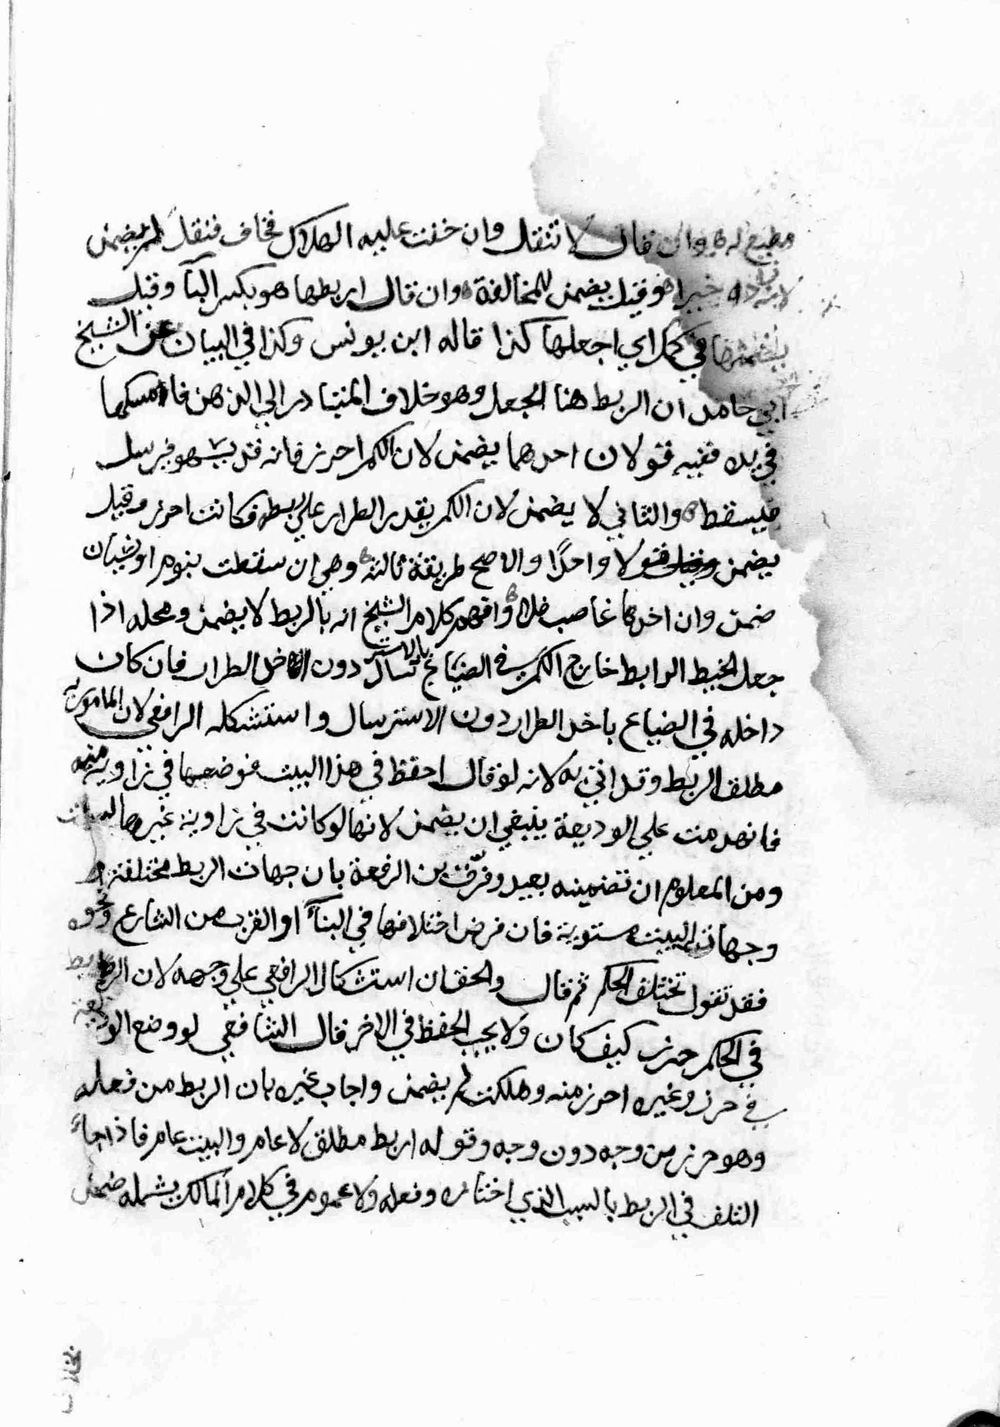 مطيع له وان قال لا تنقل وان خفت عليه الهلاك فخاف فنقل لم يضمن
لانه زاده خيرا وقيل يضمن للمخالفة وان قال اربطها هو بكسر الباء وقيل
بضمها في كمك اي اجعلها كذا قاله ابن يونس وكذا في البيان عن الشيخ
ابي حامد ان الربط هنا الجعل وهو خلاف المتبادر الى الذهن فامسكها
في يده ففيه قولان احدهما يضمن لان الكم احرز فانه قد يسهو فيرسل
فيسقط والثاني لا يضمن لان الكم يقدر الطرار علي بطه فكانت احرز وقيل
يضمن قولا واحدا والاصح طريقة ثالثة وهي ان سقطت بنوم او نسيان
ضمن وان اخذها غاصب فلا وافهم كلام الشيخ انه بالربط لا يضمن ومحله اذا
جعل الخيط الرابط خارج الكم في الضياع بالاسترسال دون اخذ الطرار فان كان
داخله في الضياع باخذ الطرار دون الاسترسال واستشكله الرافعي لان المامور به
مطلق الربط وقد اتي به لانه لو قال احفظ في هذا البيت فوضعها في زاوية منه
فانهدمت علي الوديعة ينبغي ان يضمن لانها لو كانت في زاوية غيرها لسلمت
ومن المعلوم ان تضمينه بعيد وفرق بن الرفعة بان جهات الربط مختلفة
وجهات البيت مستوية فان فرض اختلافها في البناء او القرب من الشارع ونحوه
فقد نقول تختلف الحكم ثم قال والحق ان استشكال الرافعي علي وجهه لان الربط
في الكم حرز كيف كان ولا يجب الحفظ في الاخر قال الشافعي لو وضع الوديعة
في حرز وغيره احرز منه وهلكت لم يضمن واجاب غيره بان الربط من فعله
وهو حرز من وجه دون وجه وقوله اربط مطلق لا عام والبيت عام فاذا جاء
التلف في الربط بالسبب الذي اختاره وفعله ولا عموم في كلام المالك يشمله ضمن